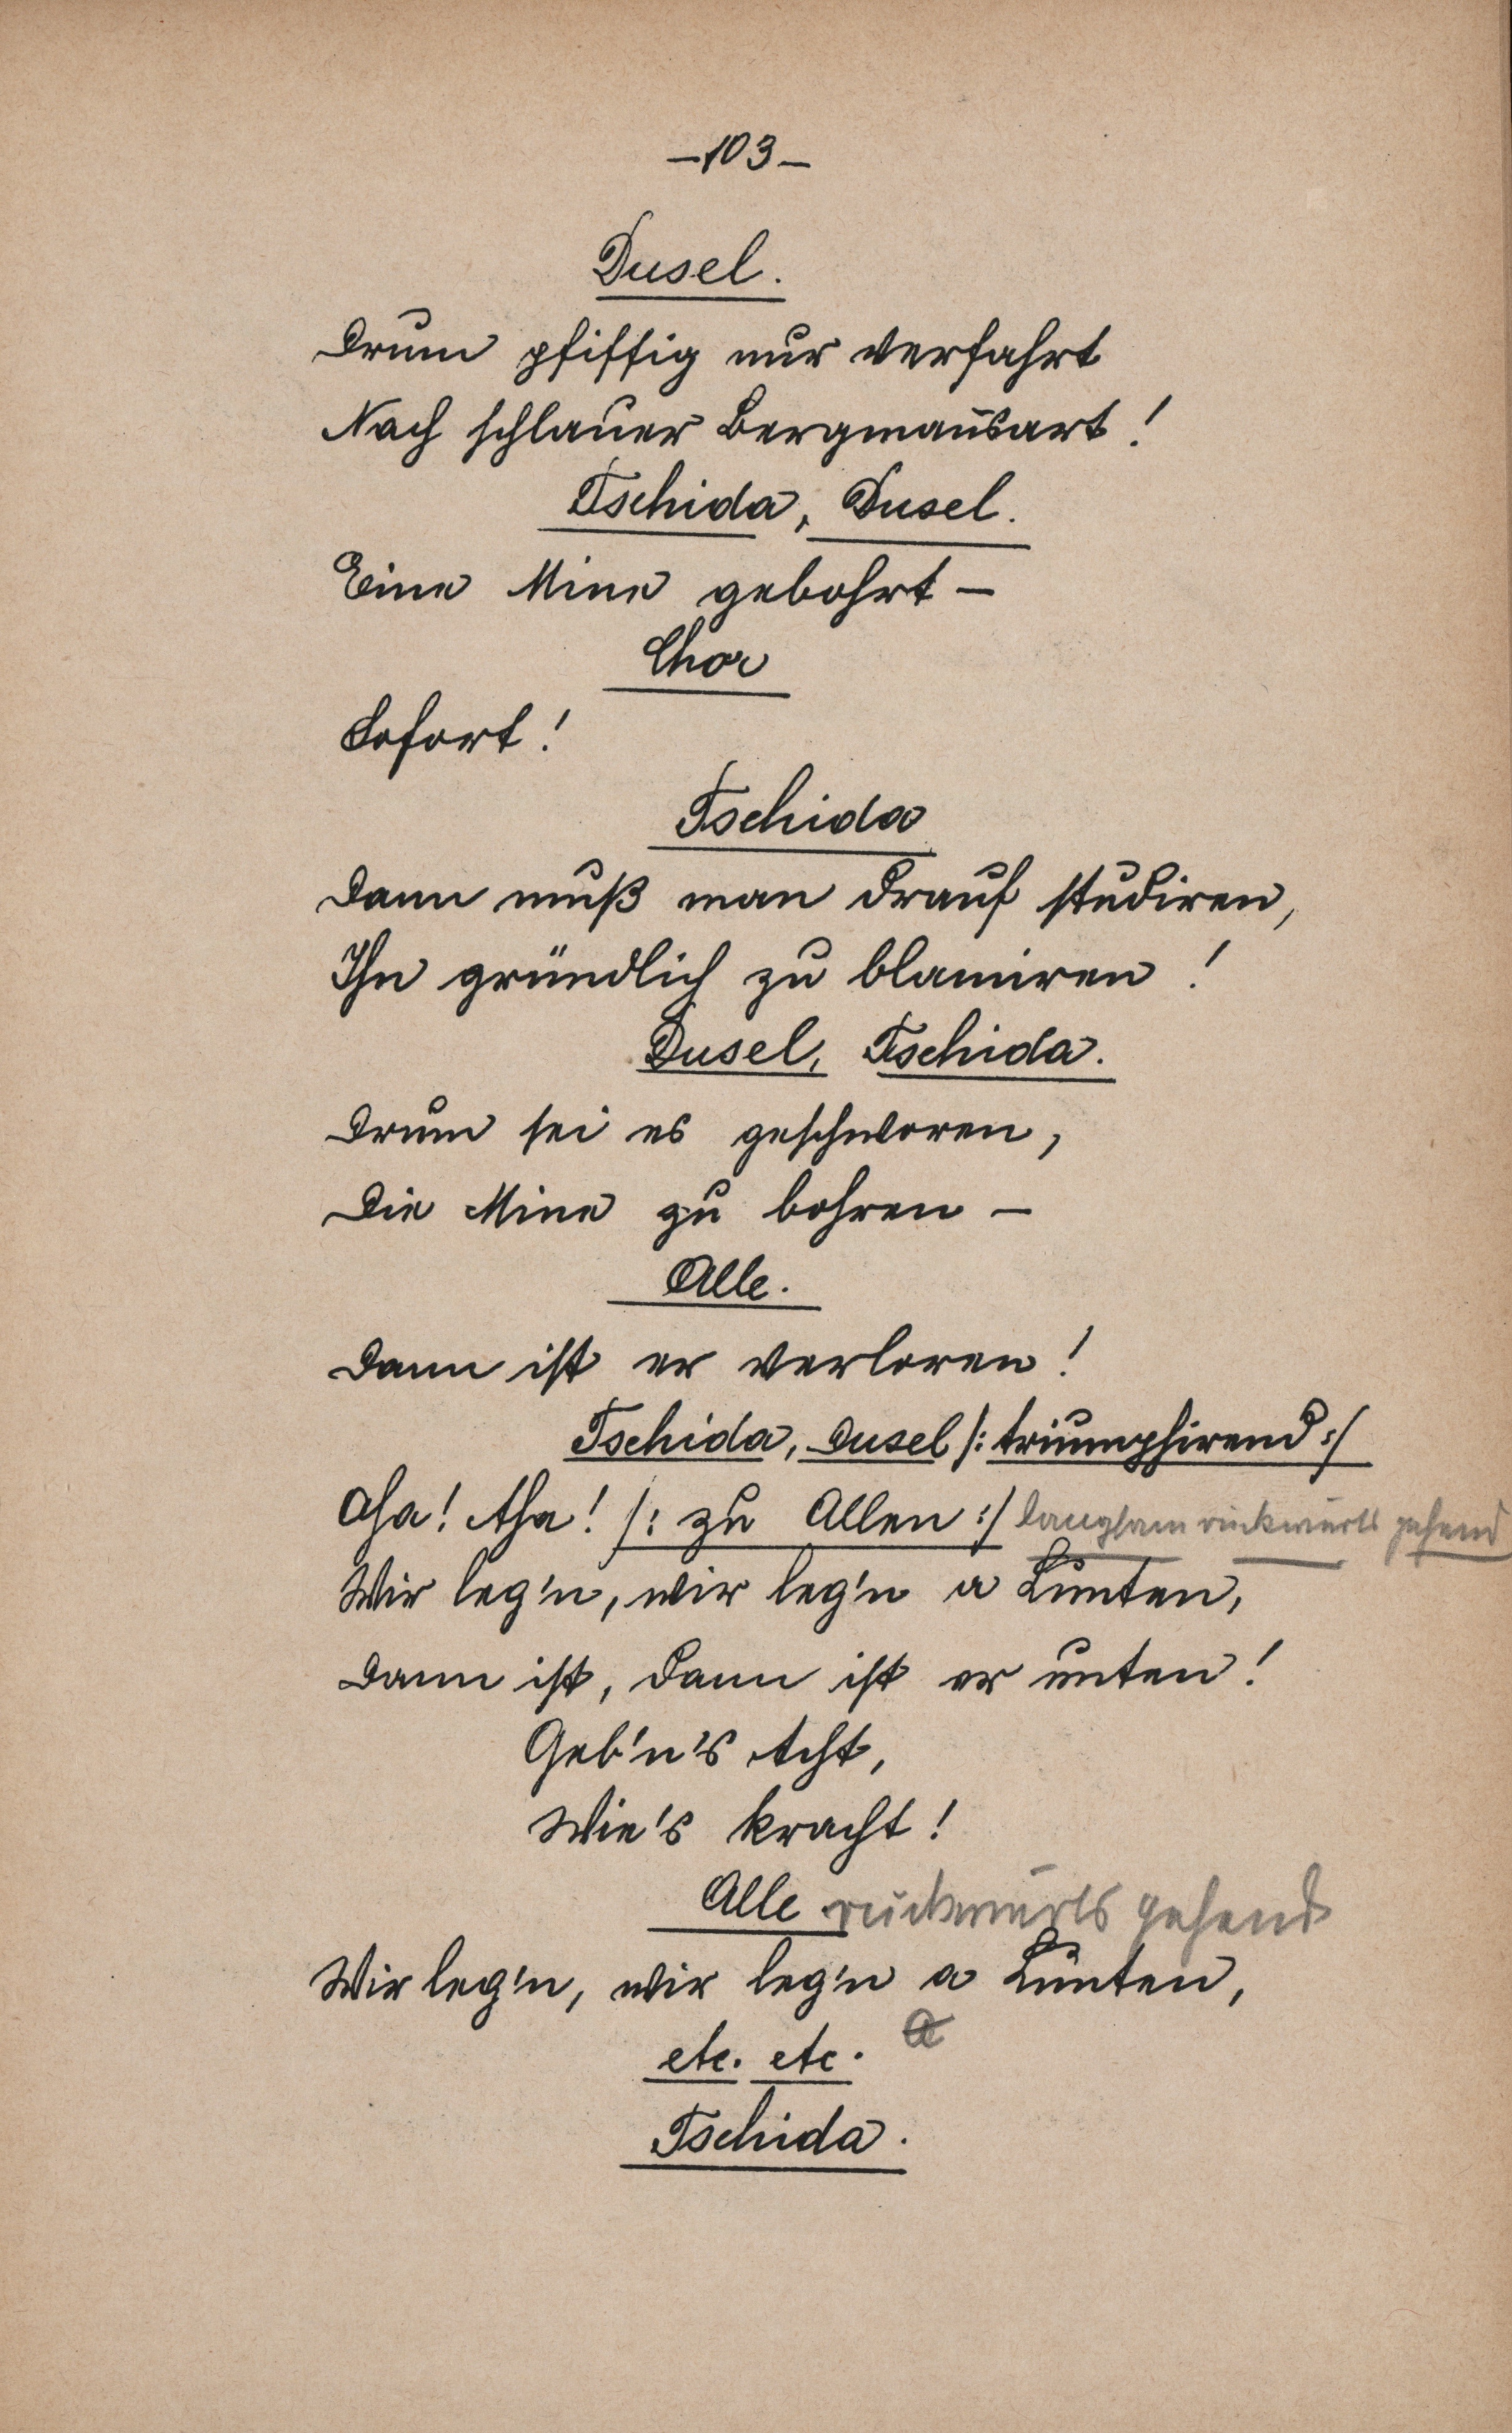 —103—
Dusel.
Drum pfiffig nur verfahrt
Nach schlauer Bergman̄sart!
Tschida, Dusel.
Eine Mine gebohrt —
Chor
Sofort!
Tschida
Dann muß man drauf studiren,
Ihn gründlich zu blamiren!
Dusel, Tschida.
Drum sei es geschworen,
Die Mine zu bohren —
Alle.
Dann ist er verloren!
Tschida, Dusel /: triumphirend :/
Aha! Aha! /: zu Allen :/ langsam rückwärts gehend
Wir leg'n, wir leg'n a Lunten,
Dann ist, dann ist er unten!
Geb'n's Acht,
Wie's kracht!
Alle rückwärts gehend
Wir leg'n, wir leg'n a Lunten,
etc. etc. a
Tschida.